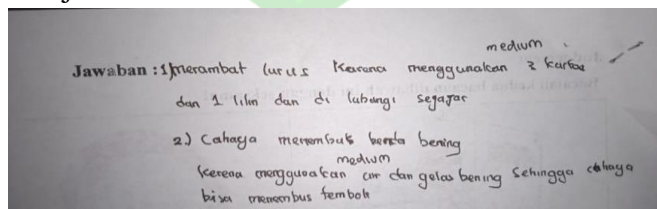 medium
Jawaban : 1) merambat lurus karena menggunakan 2 kartas
dan 1 lilin dan di lubangi segajar
2.) Cahaya menembus benda bening
medium
kerena menggunakan air dan gelas bening sehingga cahaya
bisa menembus tembok